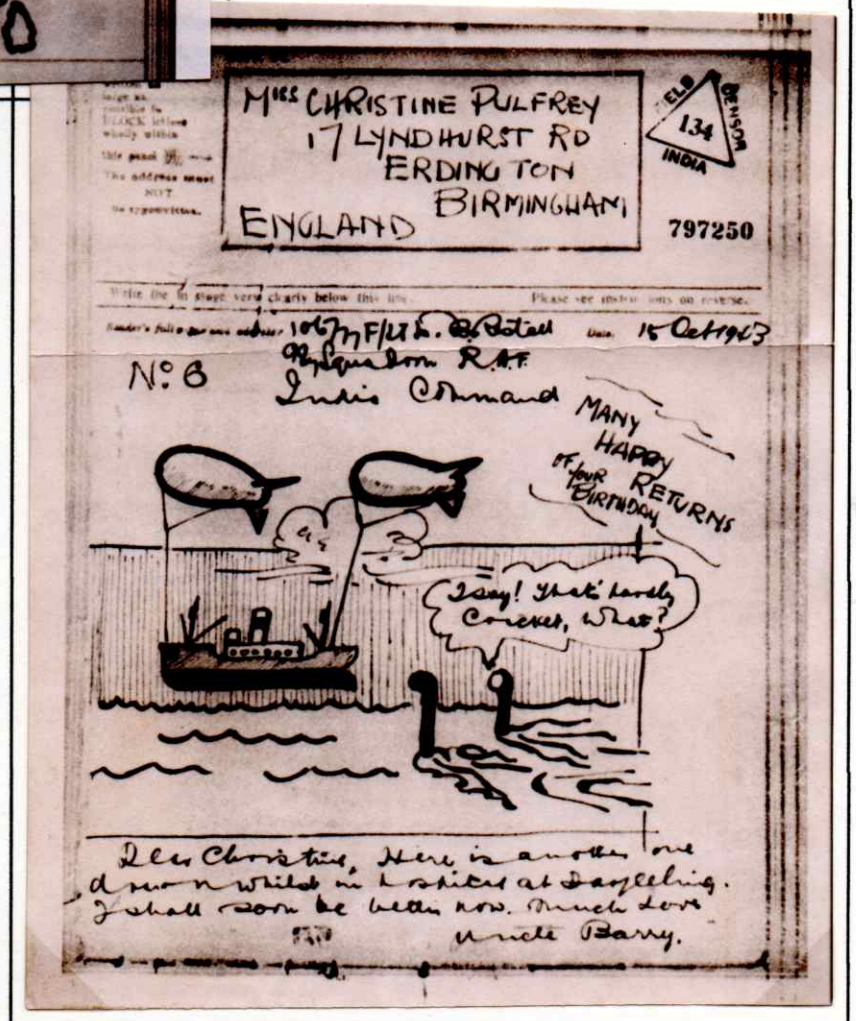 large as
possible in
BLOCK letters
wholly within
this panel
The address must
NOT
be typewritten.
Miss CHRISTINE PULFREY
17 LYNDHURST RD
ERDINGTON
BIRMINGHAM
ENGLAND
FIELD CENSOR
134
INDIA
797250
Write the message very clearly below this line.
Please see instructions on reverse.
Sender's full name and address F/Lt
Date 15 Oct 1943
Squadron R.A.F.
India Command
No: 6
MANY
HAPPY
RETURNS
OF YOUR
BIRTHDAY
I say! That's hardly
Cricket, What?
Dear Christine, Here is another one
drawn whilst in hospital at Darjeeling.
I shall soon be better now. Much Love
Uncle Barry.